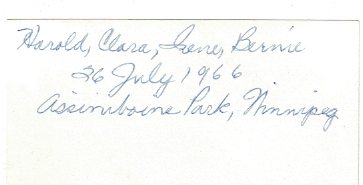 Harold, Clara, Irene, Bernie
26 July 1966
Assiniboine Park, Winnipeg